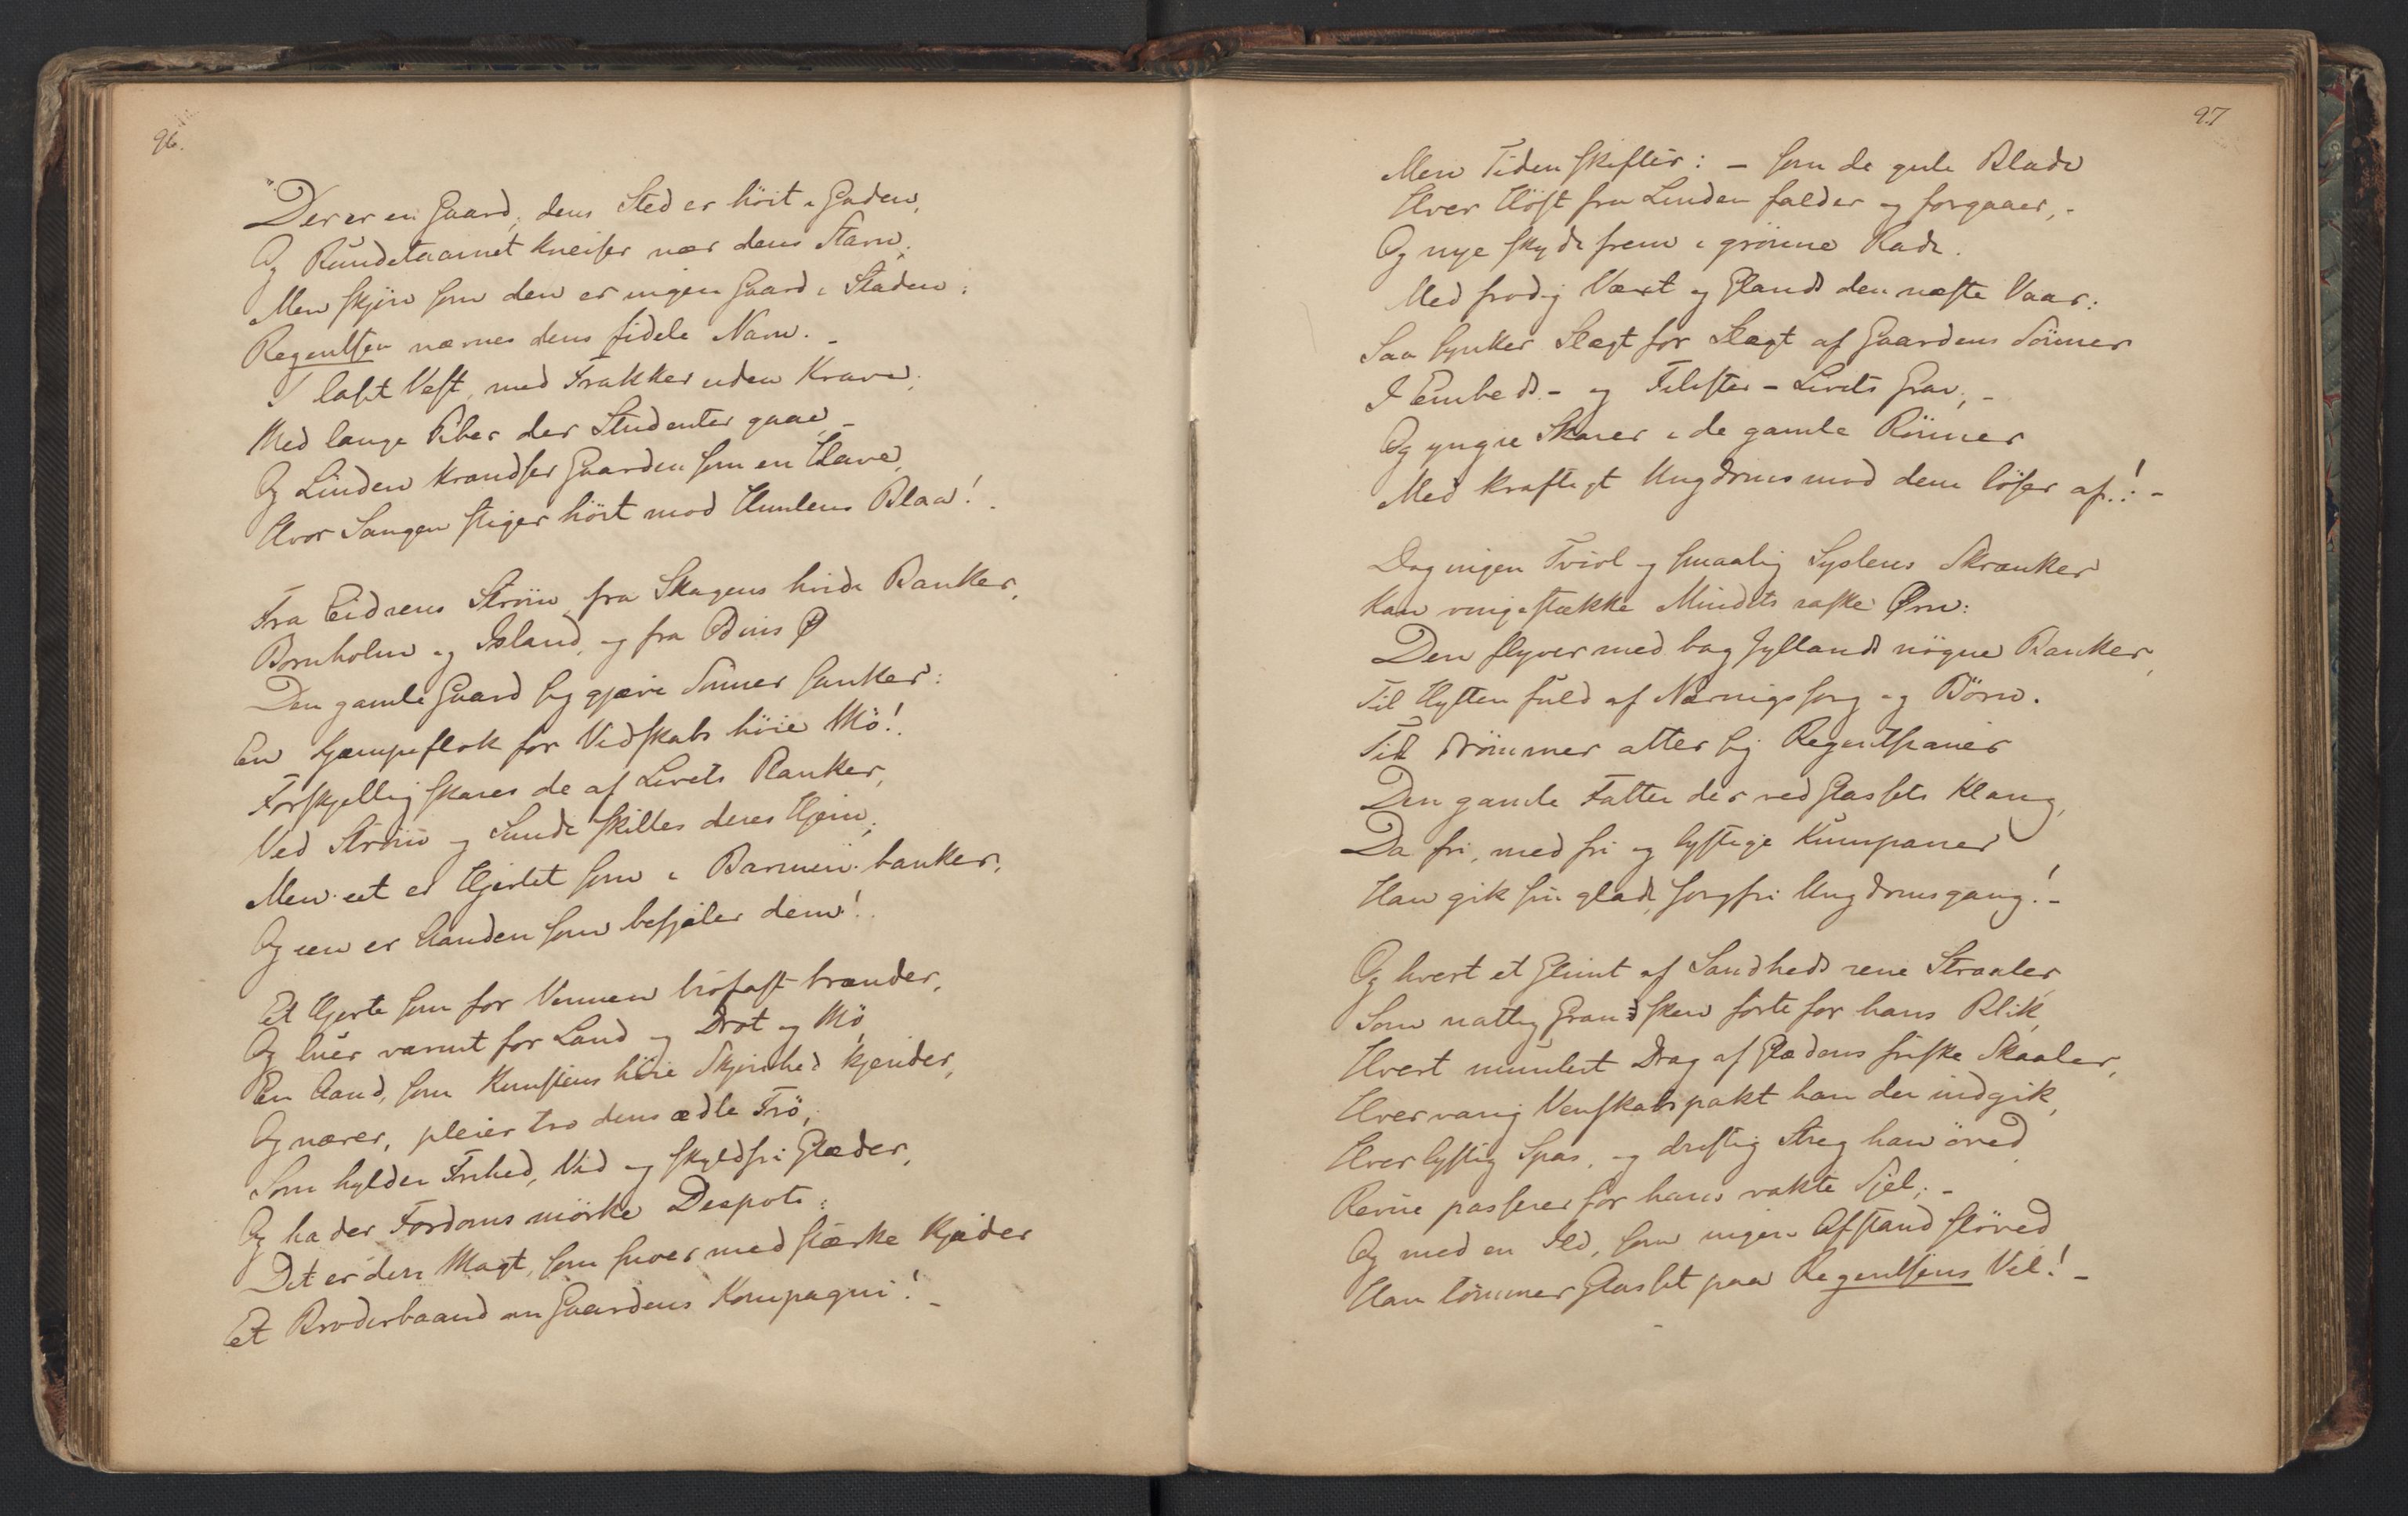 96.
Der er en Gaard, dens Sted er höit i Gaden,
Og Rundetaarnet kneiser nær dens Stavn,
Men skjön som den er ingen Gaard i Staden:
Regentsen nævnes dens fidele Navn. –
I laset Vest, med Frakker uden Krave,
Med lange Piber der Studenter gaae, –
Og Linden krandser Gaarden som en Have,
Hvor Sangen stiger höit mod Himlens Blaa!
Fra Eidrens Ström, fra Skagens hvide Banker,
Bornholm og Island, og fra Odins Ø
Den gamle Gaard sig gjæve Sönner sanker:
En Kjæmpeflok for Vidskabs höie Mö!
Forskjellig skares de af Livets Ranker,
Ved Ström og Sunde skilles deres Hjem;
Men eet er Hjertet som i Barmen banker,
Og een er Aanden som besjæler dem!
Et Hjerte som for Vennen trofast brænder,
Og luer varmt for Land og Drot og Mö,
En Aand, som Kunstens höie Skjönhed kjender,
Og nærer, pleier tro dens ædle Frö,
Som hylder Frihed, Vid og skyldfri Glæder,
Og hader Fordoms mörke Despoti:
Det er den Magt, som snoer med stærke Kjæder
Et Broderbaand om Gaardens Kompagni! –
97
Men Tiden skifter: – som de gule Blade
Hver Höst fra Linden falder og forgaaer, –
Og nye skyde frem i grönne Rade
Med frodig Væxt og Glands den næste Vaar:
Saa synker Slægt for Slægt af Gaardens Sönner
I Embeds- og Filister-Livets Grav, –
Og yngre Skarer i de gamle Rönner
Med kraftigt Ungdomsmod dem löser af! –
Dog ingen Tvivl og smaalig Syslens Skranker
Kan vingestække Mindets raske Ørn:
Den flyver med bag Jyllands nögne Banker,
Til Hytten fuld af Næringssorg og Börn.
Tidt drömmer atter sig Regentsianer
Den gamle Fatter der ved Glassets Klang,
Da fri, med fri og lystige Kumpaner
Han gik sin glade, sorgfri Ungdomsgang! –
Og hvert et Glimt af Sandheds rene Straaler,
Som nattlig Grandsken förte for hans Blik,
Hvert muntert Drag af Glædens friske Skaaler,
Hver varig Venskabspakt han der indgik,
Hver lystig Spas, og dristig Streg han öved,
Revue passerer for hans vakte Sjel; –
Og med en Ild, som ingen Afstand slöved
Han tömmer Glasset paa Regentsens Vel! –